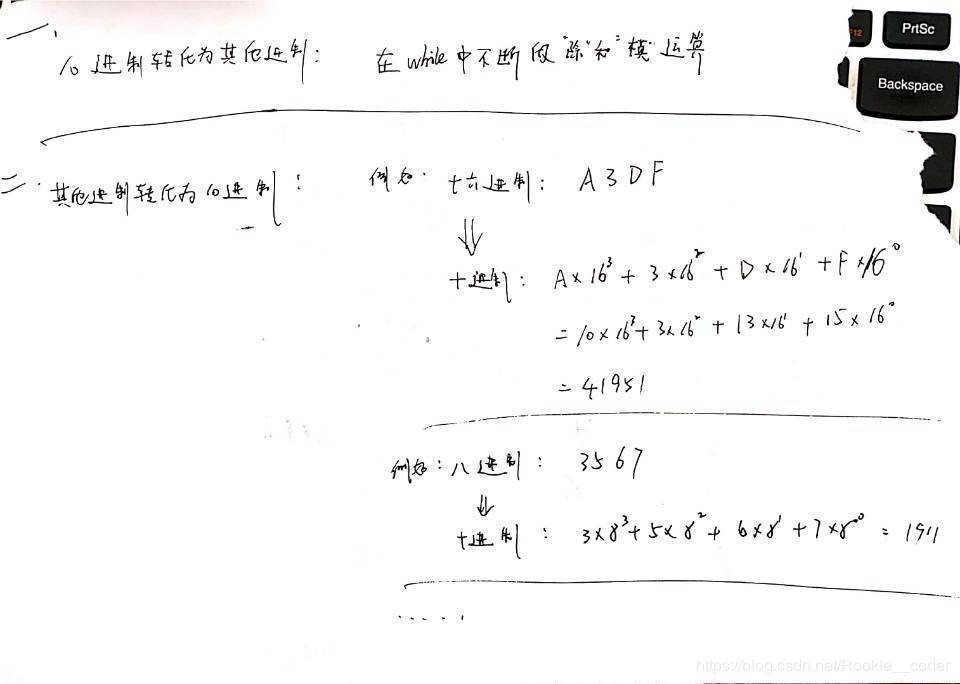 一、
10进制转化为其他进制： 在while中不断做"除"和"模"运算
二. 其他进制转化为10进制： 例如. 十六进制： A3DF
⇓
十进制： A×16³ + 3×16² + D×16¹ + F×16⁰
= 10×16³ + 3×16² + 13×16¹ + 15×16⁰
= 41951
例如：八进制： 3567
⇓
十进制： 3×8³ + 5×8² + 6×8¹ + 7×8⁰ = 1911
......
PrtSc
F12
Backspace
https://blog.csdn.net/Rookie__coder